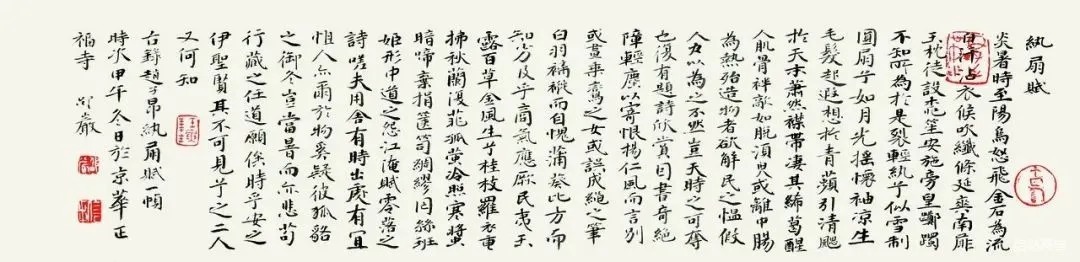 紈扇賦
炎暑時至陽烏怒飛金石為流
白汗沾衣候吹纖條延爽南扉
玉枕徒設桃笙安施旁皇躑躅
不知所為於是裂輕紈兮似雪制
圓扇兮如月光搖懷袖涼生
毛髮起遐想於青蘋引清颸
於天末蕭然襟帶凄其絺葛醒
人肌骨祥敵如脫須臾或離中腸
為熱殆造物者欲解民之慍假
人力以為之不然豈天時之可奪
也復有題詩欣賞因書奇絕
障輕塵以寄恨揚仁風而言別
或畫乘鸞之女或誤成蠅之筆
白羽褵褷而自愧蒲葵比方而
知劣及乎商氣應厥民夷玉
露百草金風生乎桂枝羅衣重
拂秋蘭復菲孤螢冷照寒螿
暗啼棄捐篋笥綢繆罔絲班
姬形中道之怨江淹賦零落之
詩嗟夫用舍有時出處有宜
惟人亦爾於物奚疑彼狐貉
之御冬豈當暑而亦悲苟
行藏之任道願俟時乎安之
伊聖賢其不可見兮之二人
又何知
古錄趙子昂紈扇賦一幀
時次甲午冬日於京華正
福寺